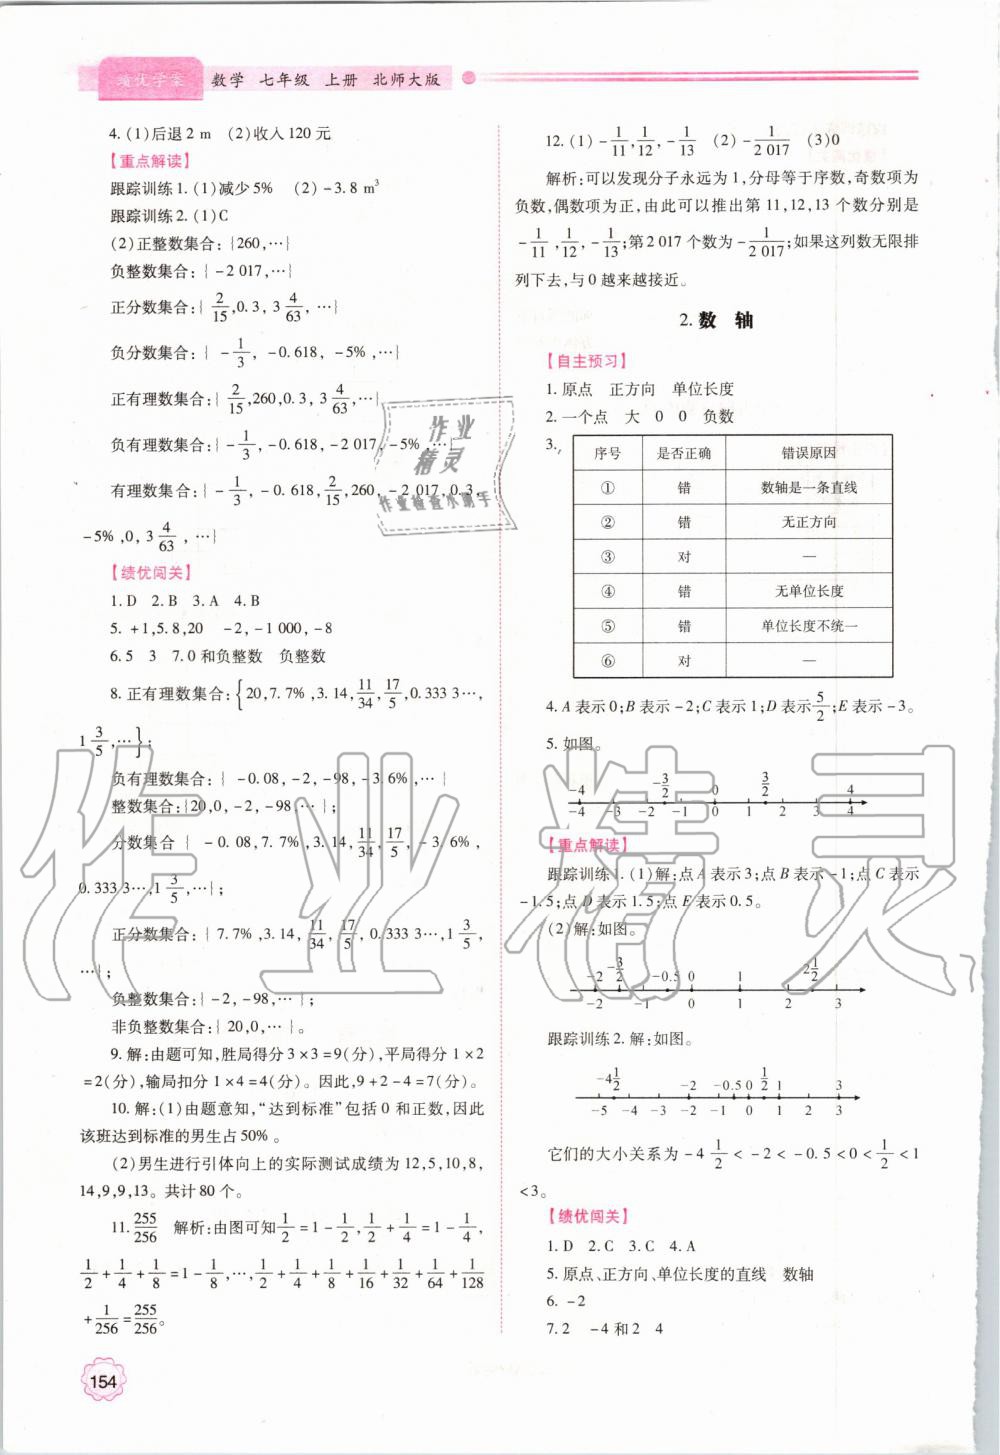 绩优学案 数学 七年级 上册 北师大版
4.(1)后退2 m (2)收入120元
【重点解读】
跟踪训练1.(1)减少5% (2)-3.8 m³
跟踪训练2.(1)C
(2)正整数集合:{260,…}
负整数集合:{-2 017,…}
正分数集合:{2/15,0.3,3 4/63,…}
负分数集合:{-1/3,-0.618,-5%,…}
正有理数集合:{2/15,260,0.3,3 4/63,…}
负有理数集合:{-1/3,-0.618,-2 017,-5%,…}
有理数集合:{-1/3,-0.618,2/15,260,-2 017,0.3,
-5%,0,3 4/63,…}
【绩优闯关】
1.D 2.B 3.A 4.B
5.+1,5.8,20 -2,-1 000,-8
6.5 3 7.0和负整数 负整数
8.正有理数集合:{20,7.7%,3.14,11/34,17/5,0.333 3…,
1 3/5,…};
负有理数集合:{-0.08,-2,-98,-3.6%,…}
整数集合:{20,0,-2,-98…};
分数集合{-0.08,7.7%,3.14,11/34,17/5,-3.6%,
0.333 3…,1 3/5,…};
正分数集合:{7.7%,3.14,11/34,17/5,0.333 3…,1 3/5,
…};
负整数集合:{-2,-98,…};
非负整数集合:{20,0,…}。
9.解:由题可知,胜局得分3×3=9(分),平局得分1×2
=2(分),输局扣分1×4=4(分)。因此,9+2-4=7(分)。
10.解:(1)由题意知,“达到标准”包括0和正数,因此
该班达到标准的男生占50%。
(2)男生进行引体向上的实际测试成绩为12,5,10,8,
14,9,9,13。共计80个。
11.255/256 解析:由图可知1/2=1-1/2,1/2+1/4=1-1/4,
1/2+1/4+1/8=1-1/8,…,1/2+1/4+1/8+1/16+1/32+1/64+1/128
+1/256=255/256。
154
12.(1)-1/11,1/12,-1/13 (2)-1/2 017 (3)0
解析:可以发现分子永远为1,分母等于序数,奇数项为
负数,偶数项为正,由此可以推出第11,12,13个数分别是
-1/11,1/12,-1/13;第2 017个数为-1/2 017;如果这列数无限排
列下去,与0越来越接近。
2.数 轴
【自主预习】
1.原点 正方向 单位长度
2.一个点 大 0 0 负数
3.
序号 是否正确 错误原因
① 错 数轴是一条直线
② 错 无正方向
③ 对 —
④ 错 无单位长度
⑤ 错 单位长度不统一
⑥ 对 —
4.A表示0;B表示-2;C表示1;D表示5/2;E表示-3。
5.如图。
-4 -3/2 0 3/2 4
-4 -3 -2 -1 0 1 2 3 4
【重点解读】
跟踪训练1.(1)解:点A表示3;点B表示-1;点C表示
-1.5;点D表示1.5;点E表示0.5。
(2)解:如图。
-2 -3/2 -0.5 0 1 2 1/2
-2 -1 0 1 2 3
跟踪训练2.解:如图。
-4 1/2 -2 -0.5 0 1/2 1 3
-5 -4 -3 -2 -1 0 1 2 3
它们的大小关系为-4 1/2<-2<-0.5<0<1/2<1
<3。
【绩优闯关】
1.D 2.C 3.C 4.A
5.原点、正方向、单位长度的直线 数轴
6.-2
7.2 -4和2 4
作业
精灵
作业检查小助手
作业精灵